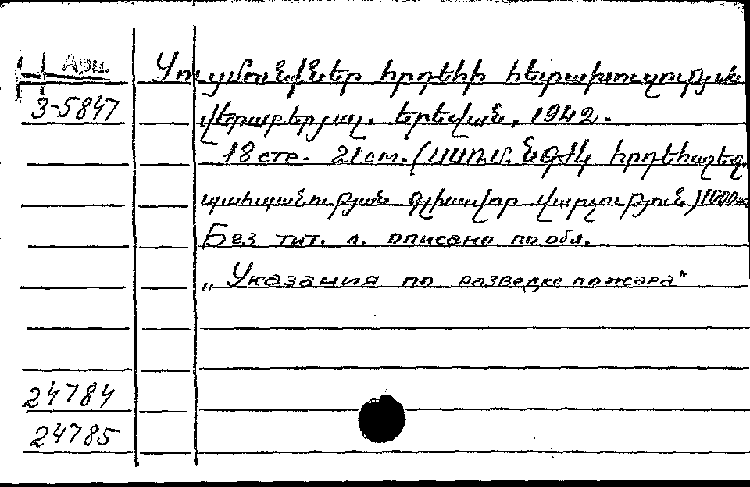 Арм.
3-5847
Ցուցմունքներ հրդեհի հետախուզության
վերաբերյալ. Երեվան, 1942.
18 стр. 21 см. (ՍՍՌՄ ՆԳԺԿ հրդեհաշեջ
պահպանության գլխավոր վարչություն) 1000
Без тит. л. описано по обл.
„Указания по разведке пожара"
24784
24785